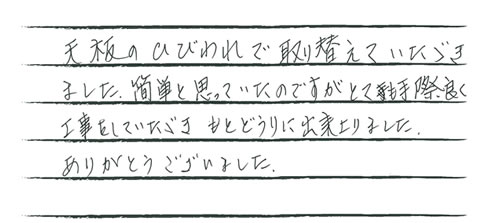 天板のひびわれで取り替えていただき
ました。簡単と思っていたのですがとても手際良く
工事をしていただき もとどうりに出来上りました。
ありがとうございました。